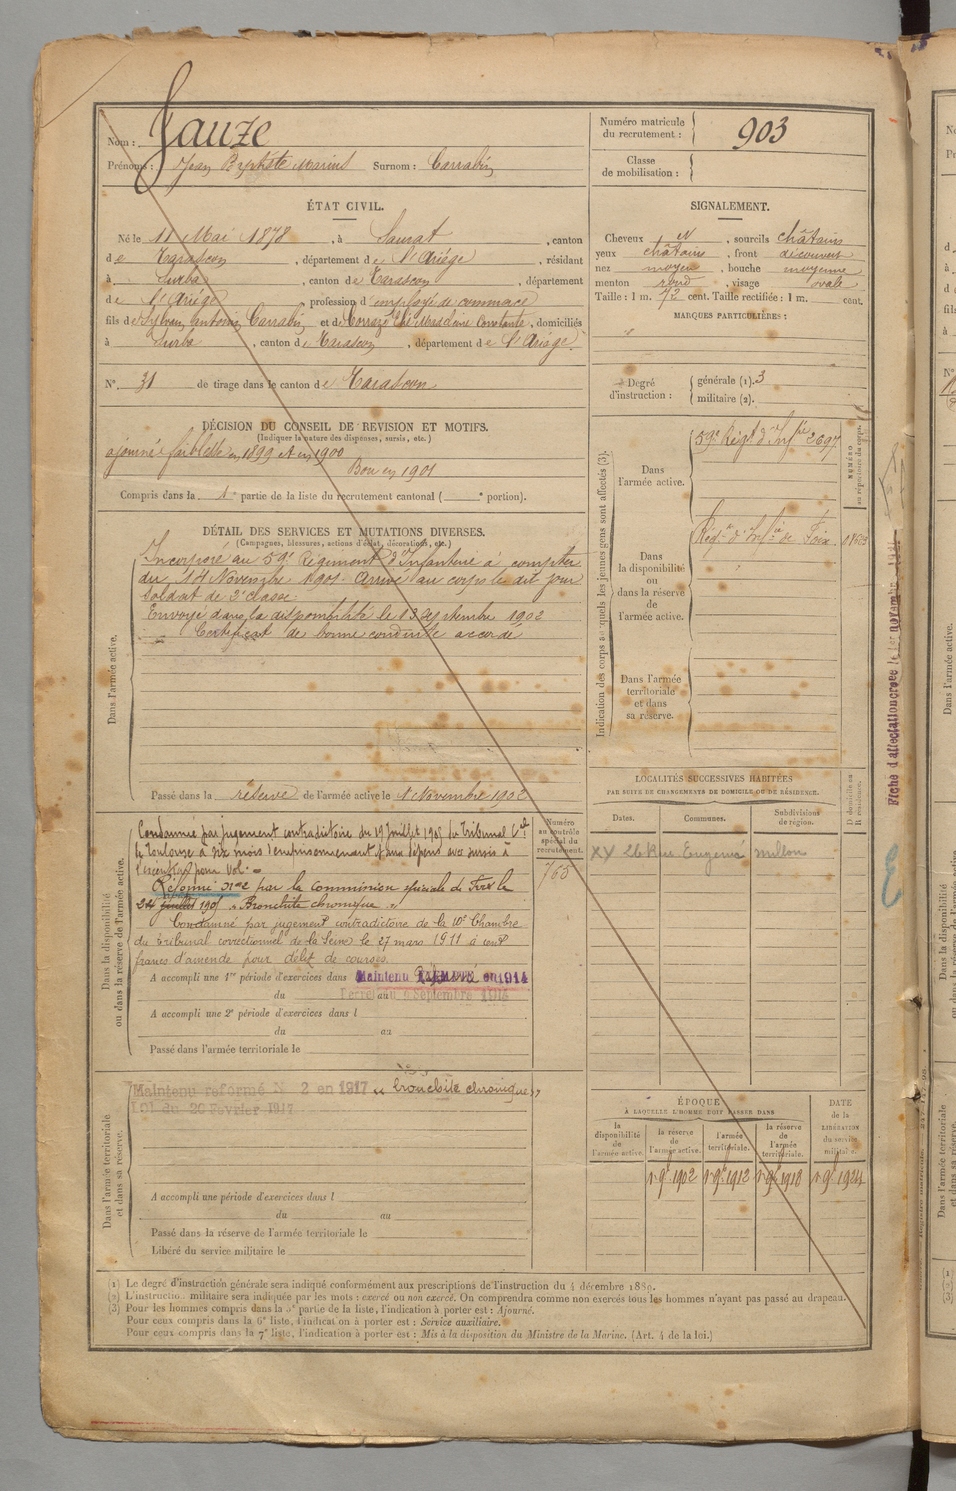 Nom : Jauze
Prénoms : Jean Baptiste Marius Surnom : Carrabin
Numéro matricule du recrutement : 903
Classe de mobilisation :
ÉTAT CIVIL.
Né le 11 Mai 1878, à Saurat, canton
de Tarascon, département de l'Ariège, résidant
à Surba, canton de Tarascon, département
de l'Ariège, profession d'employé de commerce
fils de Sylvain Antoine Carrabin et de Constante, domiciliés
à Surba, canton de Tarascon, département de l'Ariège.
N° 31 de tirage dans le canton de Tarascon
SIGNALEMENT.
Cheveux N, sourcils châtains
yeux châtains, front découvert
nez moyen, bouche moyenne
menton rond, visage ovale
Taille : 1 m. 72 cent. Taille rectifiée : 1 m. cent.
MARQUES PARTICULIÈRES :
Degré d'instruction : générale (1). 3
militaire (2).
DÉCISION DU CONSEIL DE REVISION ET MOTIFS.
(Indiquer la nature des dispenses, sursis, etc.)
ajourné faiblesse en 1899 et en 1900
Bon en 1901
Compris dans la 1e partie de la liste du recrutement cantonal ( e portion).
DÉTAIL DES SERVICES ET MUTATIONS DIVERSES.
(Campagnes, blessures, actions d'éclat, décorations, etc.)
Dans l'armée active.
Incorporé au 59e Régiment d'Infanterie à compter
du 14 Novembre 1901. Arrivé au corps le dit jour
soldat de 2e classe.
Envoyé dans la disponibilité le 13 septembre 1902
Certificat de bonne conduite accordé
Passé dans la réserve de l'armée active le 1 Novembre 1902
Indication des corps auxquels les jeunes gens sont affectés (3).
NUMÉRO au répertoire du corps.
Dans l'armée active.
59e Régt d'Infie 2697
Dans la disponibilité ou dans la réserve de l'armée active.
Régt d'Infie de Foix
Dans l'armée territoriale et dans sa réserve.
Fiche d'affectation créée le 1er novembre
LOCALITÉS SUCCESSIVES HABITÉES
PAR SUITE DE CHANGEMENTS DE DOMICILE OU DE RÉSIDENCE.
Dates. Communes. Subdivisions de région. D domicile ou R résidence.
XX 26 Rue Eugène Millon
Dans la disponibilité ou dans la réserve de l'armée active.
Numéro au contrôle spécial du recrutement.
765
Condamné par jugement contradictoire du 19 Juillet 1905 du Tribunal Cel
de Toulouse à six mois d'emprisonnement et aux dépens avec sursis à
l'exécution pour Vol.
Réformé N° 2 par la commission spéciale de Foix le
24 juillet 1905 "Bronchite chronique"
Condamné par jugement contradictoire de la 10e Chambre
du tribunal correctionnel de la Seine le 27 mars 1911 à cent
francs d'amende pour délit de courses.
A accompli une 1re période d'exercices dans Maintenu en 1914
du au Septembre 1914
A accompli une 2e période d'exercices dans l
du au
Passé dans l'armée territoriale le
Dans l'armée territoriale et dans sa réserve.
Maintenu réformé N° 2 en 1917 "bronchite chronique"
Loi du 20 Février 1917
A accompli une période d'exercices dans l
du au
Passé dans la réserve de l'armée territoriale le
Libéré du service militaire le
ÉPOQUE
À LAQUELLE L'HOMME DOIT PASSER DANS
la disponibilité de l'armée active. la réserve de l'armée active. l'armée territoriale. la réserve de l'armée territoriale.
DATE de la LIBÉRATION du service militaire.
1 9bre 1902 1 9bre 1912 1 9bre 1918 1 9bre 1924
(1) Le degré d'instruction générale sera indiqué conformément aux prescriptions de l'instruction du 4 décembre 1889.
(2) L'instruction militaire sera indiquée par les mots : exercé ou non exercé. On comprendra comme non exercés tous les hommes n'ayant pas passé au drapeau.
(3) Pour les hommes compris dans la 5e partie de la liste, l'indication à porter est : Ajourné.
Pour ceux compris dans la 6e liste, l'indication à porter est : Service auxiliaire.
Pour ceux compris dans la 7e liste, l'indication à porter est : Mis à la disposition du Ministre de la Marine. (Art. 4 de la loi.)